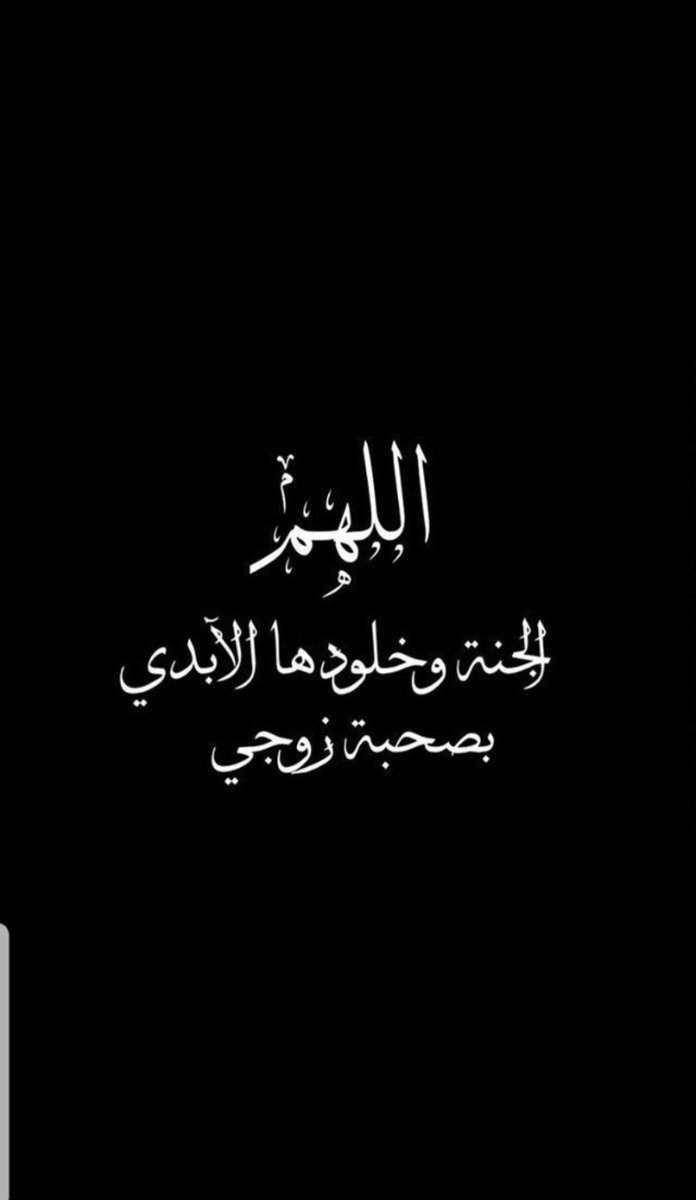 اللهم
الجنة وخلودها الأبدي
بصحبة زوجي